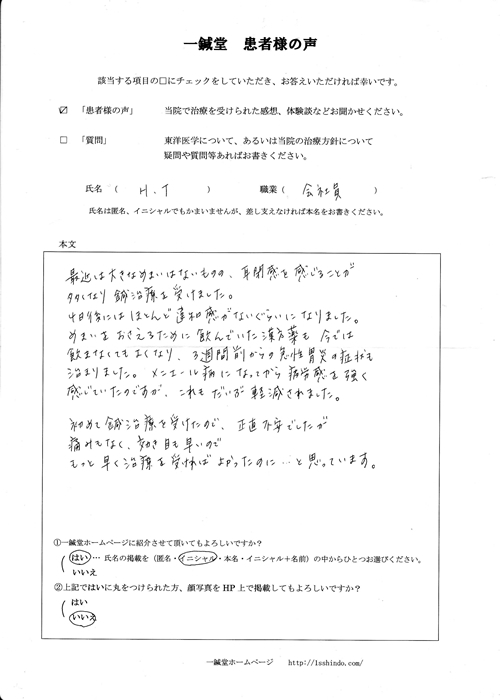 一鍼堂 患者様の声
該当する項目の□にチェックをしていただき、お答えいただければ幸いです。
☑ 「患者様の声」 当院で治療を受けられた感想、体験談などお聞かせください。
□ 「質問」 東洋医学について、あるいは当院の治療方針について
疑問や質問等あればお書きください。
氏名 ( H.T ) 職業 ( 会社員 )
氏名は匿名、イニシャルでもかまいませんが、差し支えなければ本名をお書きください。
本文
最近は大きなめまいはないものの、耳閉感を感じることが
多くなり 鍼治療を受けました。
4日後にはほとんど違和感がないぐらいになりました。
めまいをおさえるために飲んでいた漢方薬も 今では
飲まなくてもよくなり、3週間前からの急性胃炎の症状も
治まりました。メニエール病になってから疲労感を強く
感じていたのですが、これもだいぶ軽減されました。
初めて鍼治療を受けたので、正直不安でしたが
痛みもなく、効き目も早いので
もっと早く治療を受ければよかったのに…と思っています。
①一鍼堂ホームページに紹介させて頂いてもよろしいですか?
はい … 氏名の掲載を (匿名・イニシャル・本名・イニシャル+名前) の中からひとつお選びください。
いいえ
②上記ではいに丸をつけられた方、顔写真を HP 上で掲載してもよろしいですか?
はい
いいえ
一鍼堂ホームページ http://1sshindo.com/